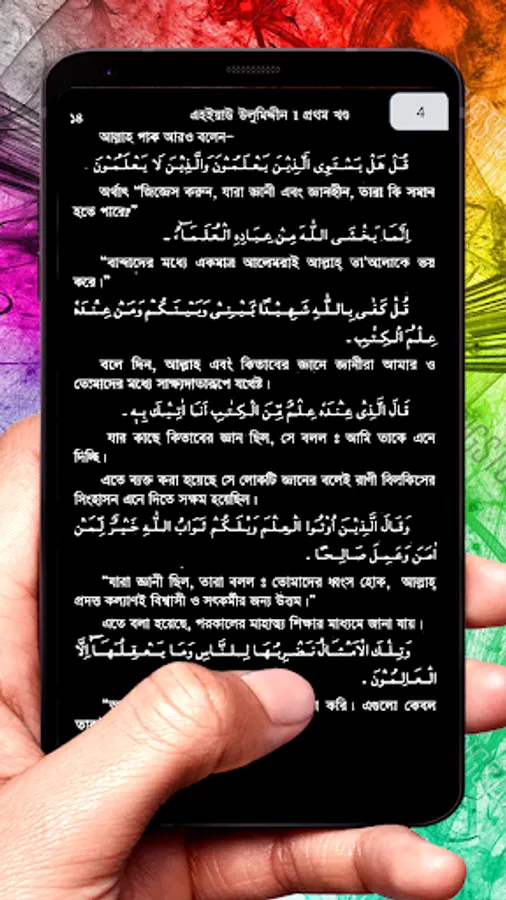 ১৪
এহইয়াউ উলূমিদ্দীন 1 প্রথম খণ্ড
4
আল্লাহ পাক আরও বলেন–
قُلْ هَلْ يَسْتَوِى الَّذِيْنَ يَعْلَمُوْنَ وَالَّذِيْنَ لَا يَعْلَمُوْنَ .
অর্থাৎ “জিজ্ঞেস করুন, যারা জ্ঞানী এবং জ্ঞানহীন, তারা কি সমান
হতে পারে?”
اِنَّمَا يَخْشَى اللّٰهَ مِنْ عِبَادِهِ الْعُلَمَاۤءُ .
“বান্দাদের মধ্যে একমাত্র আলেমরাই আল্লাহ্ তা’আলাকে ভয়
করে।”
قُلْ كَفٰى بِاللّٰهِ شَهِيْدًا بَيْنِىْ وَبَيْنَكُمْ وَمَنْ عِنْدَهٗ
عِلْمُ الْكِتٰبِ .
বলে দিন, আল্লাহ এবং কিতাবের জ্ঞানে জ্ঞানীরা আমার ও
তোমাদের মধ্যে সাক্ষ্যদাতারূপে যথেষ্ট।
قَالَ الَّذِىْ عِنْدَهٗ عِلْمٌ مِّنَ الْكِتٰبِ اَنَا اٰتِيْكَ بِهٖ .
যার কাছে কিতাবের জ্ঞান ছিল, সে বলল ঃ আমি তাকে এনে
দিচ্ছি।
এতে ব্যক্ত করা হয়েছে সে লোকটি জ্ঞানের বলেই রাণী বিলকিসের
সিংহাসন এনে দিতে সক্ষম হয়েছিল।
وَقَالَ الَّذِيْنَ اُوْتُوا الْعِلْمَ وَيْلَكُمْ ثَوَابُ اللّٰهِ خَيْرٌ لِّمَنْ
اٰمَنَ وَعَمِلَ صَالِحًا .
“যারা জ্ঞানী ছিল, তারা বলল ঃ তোমাদের ধ্বংস হোক, আল্লাহ্
প্রদত্ত কল্যাণই বিশ্বাসী ও সৎকর্মীর জন্য উত্তম।”
এতে বলা হয়েছে, পরকালের মাহাত্ম্য শিক্ষার মাধ্যমে জানা যায়।
وَتِلْكَ الْاَمْثَالُ نَضْرِبُهَا لِلنَّاسِ وَمَا يَعْقِلُهَا اِلَّا
الْعَالِمُوْنَ .
করি। এগুলো কেবল